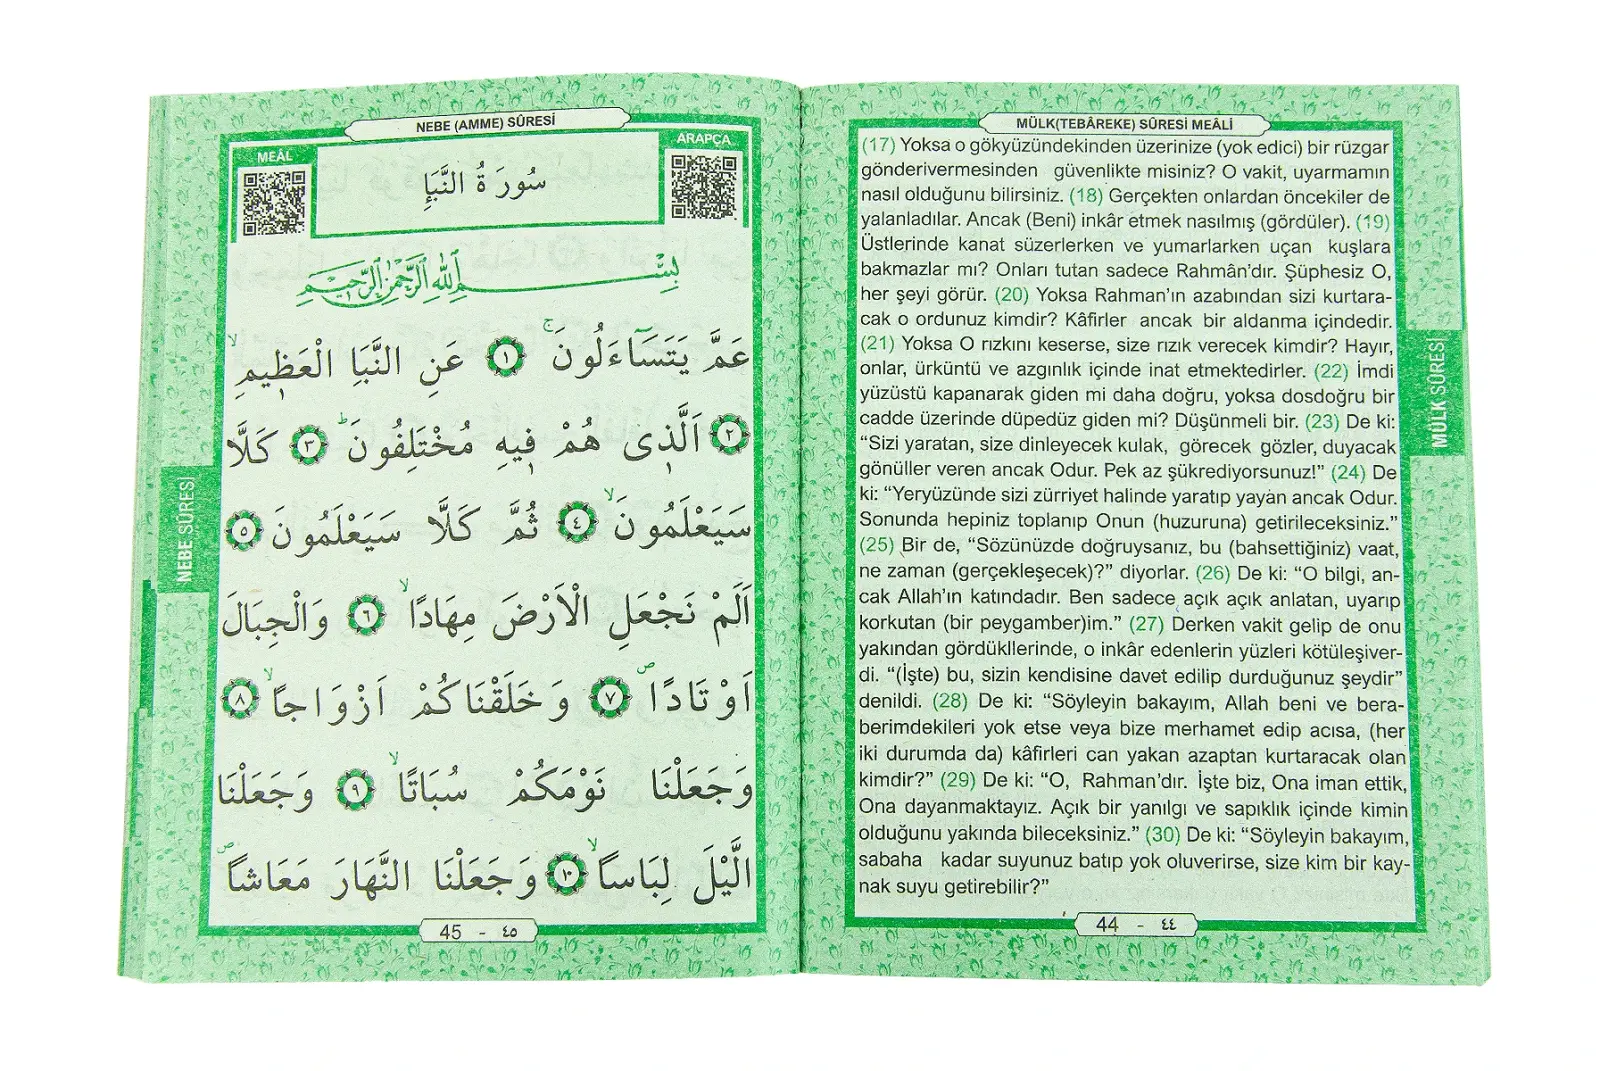 MÜLK(TEBÂREKE) SÛRESİ MEÂLİ
(17) Yoksa o gökyüzündekinden üzerinize (yok edici) bir rüzgar
gönderivermesinden güvenlikte misiniz? O vakit, uyarmamın
nasıl olduğunu bilirsiniz. (18) Gerçekten onlardan öncekiler de
yalanladılar. Ancak (Beni) inkâr etmek nasılmış (gördüler). (19)
Üstlerinde kanat süzerlerken ve yumarlarken uçan kuşlara
bakmazlar mı? Onları tutan sadece Rahmân’dır. Şüphesiz O,
her şeyi görür. (20) Yoksa Rahman’ın azabından sizi kurtara-
cak o ordunuz kimdir? Kâfirler ancak bir aldanma içindedir.
(21) Yoksa O rızkını keserse, size rızık verecek kimdir? Hayır,
onlar, ürküntü ve azgınlık içinde inat etmektedirler. (22) İmdi
yüzüstü kapanarak giden mi daha doğru, yoksa dosdoğru bir
cadde üzerinde düpedüz giden mi? Düşünmeli bir. (23) De ki:
“Sizi yaratan, size dinleyecek kulak, görecek gözler, duyacak
gönüller veren ancak Odur. Pek az şükrediyorsunuz!” (24) De
ki: “Yeryüzünde sizi zürriyet halinde yaratıp yayan ancak Odur.
Sonunda hepiniz toplanıp Onun (huzuruna) getirileceksiniz.”
(25) Bir de, “Sözünüzde doğruysanız, bu (bahsettiğiniz) vaat,
ne zaman (gerçekleşecek)?” diyorlar. (26) De ki: “O bilgi, an-
cak Allah’ın katındadır. Ben sadece açık açık anlatan, uyarıp
korkutan (bir peygamber)im.” (27) Derken vakit gelip de onu
yakından gördükllerinde, o inkâr edenlerin yüzleri kötüleşiver-
di. “(İşte) bu, sizin kendisine davet edilip durduğunuz şeydir”
denildi. (28) De ki: “Söyleyin bakayım, Allah beni ve bera-
berimdekileri yok etse veya bize merhamet edip acısa, (her
iki durumda da) kâfirleri can yakan azaptan kurtaracak olan
kimdir?” (29) De ki: “O, Rahman’dır. İşte biz, Ona iman ettik,
Ona dayanmaktayız. Açık bir yanılgı ve sapıklık içinde kimin
olduğunu yakında bileceksiniz.” (30) De ki: “Söyleyin bakayım,
sabaha kadar suyunuz batıp yok oluverirse, size kim bir kay-
nak suyu getirebilir?”
44 - ٤٤
MÜLK SÛRESİ
NEBE (AMME) SÛRESİ
MEÂL
ARAPÇA
سُورَةُ النَّبَإِ
بِسْمِ اللّٰهِ الرَّحْمٰنِ الرَّحِيمِ
عَمَّ يَتَسَآءَلُونَۚ ١ عَنِ النَّبَاِ الْعَظٖيمِۙ
٢ اَلَّذٖى هُمْ فٖيهِ مُخْتَلِفُونَؕ ٣ كَلَّا
سَيَعْلَمُونَۙ ٤ ثُمَّ كَلَّا سَيَعْلَمُونَ ٥
اَلَمْ نَجْعَلِ الْاَرْضَ مِهَادًاۙ ٦ وَالْجِبَالَ
اَوْتَادًاۖ ٧ وَخَلَقْنَاكُمْ اَزْوَاجًاۙ ٨
وَجَعَلْنَا نَوْمَكُمْ سُبَاتًاۙ ٩ وَجَعَلْنَا
الَّيْلَ لِبَاسًاۙ ١٠ وَجَعَلْنَا النَّهَارَ مَعَاشًاۖ
45 - ٤٥
NEBE SÛRESİ